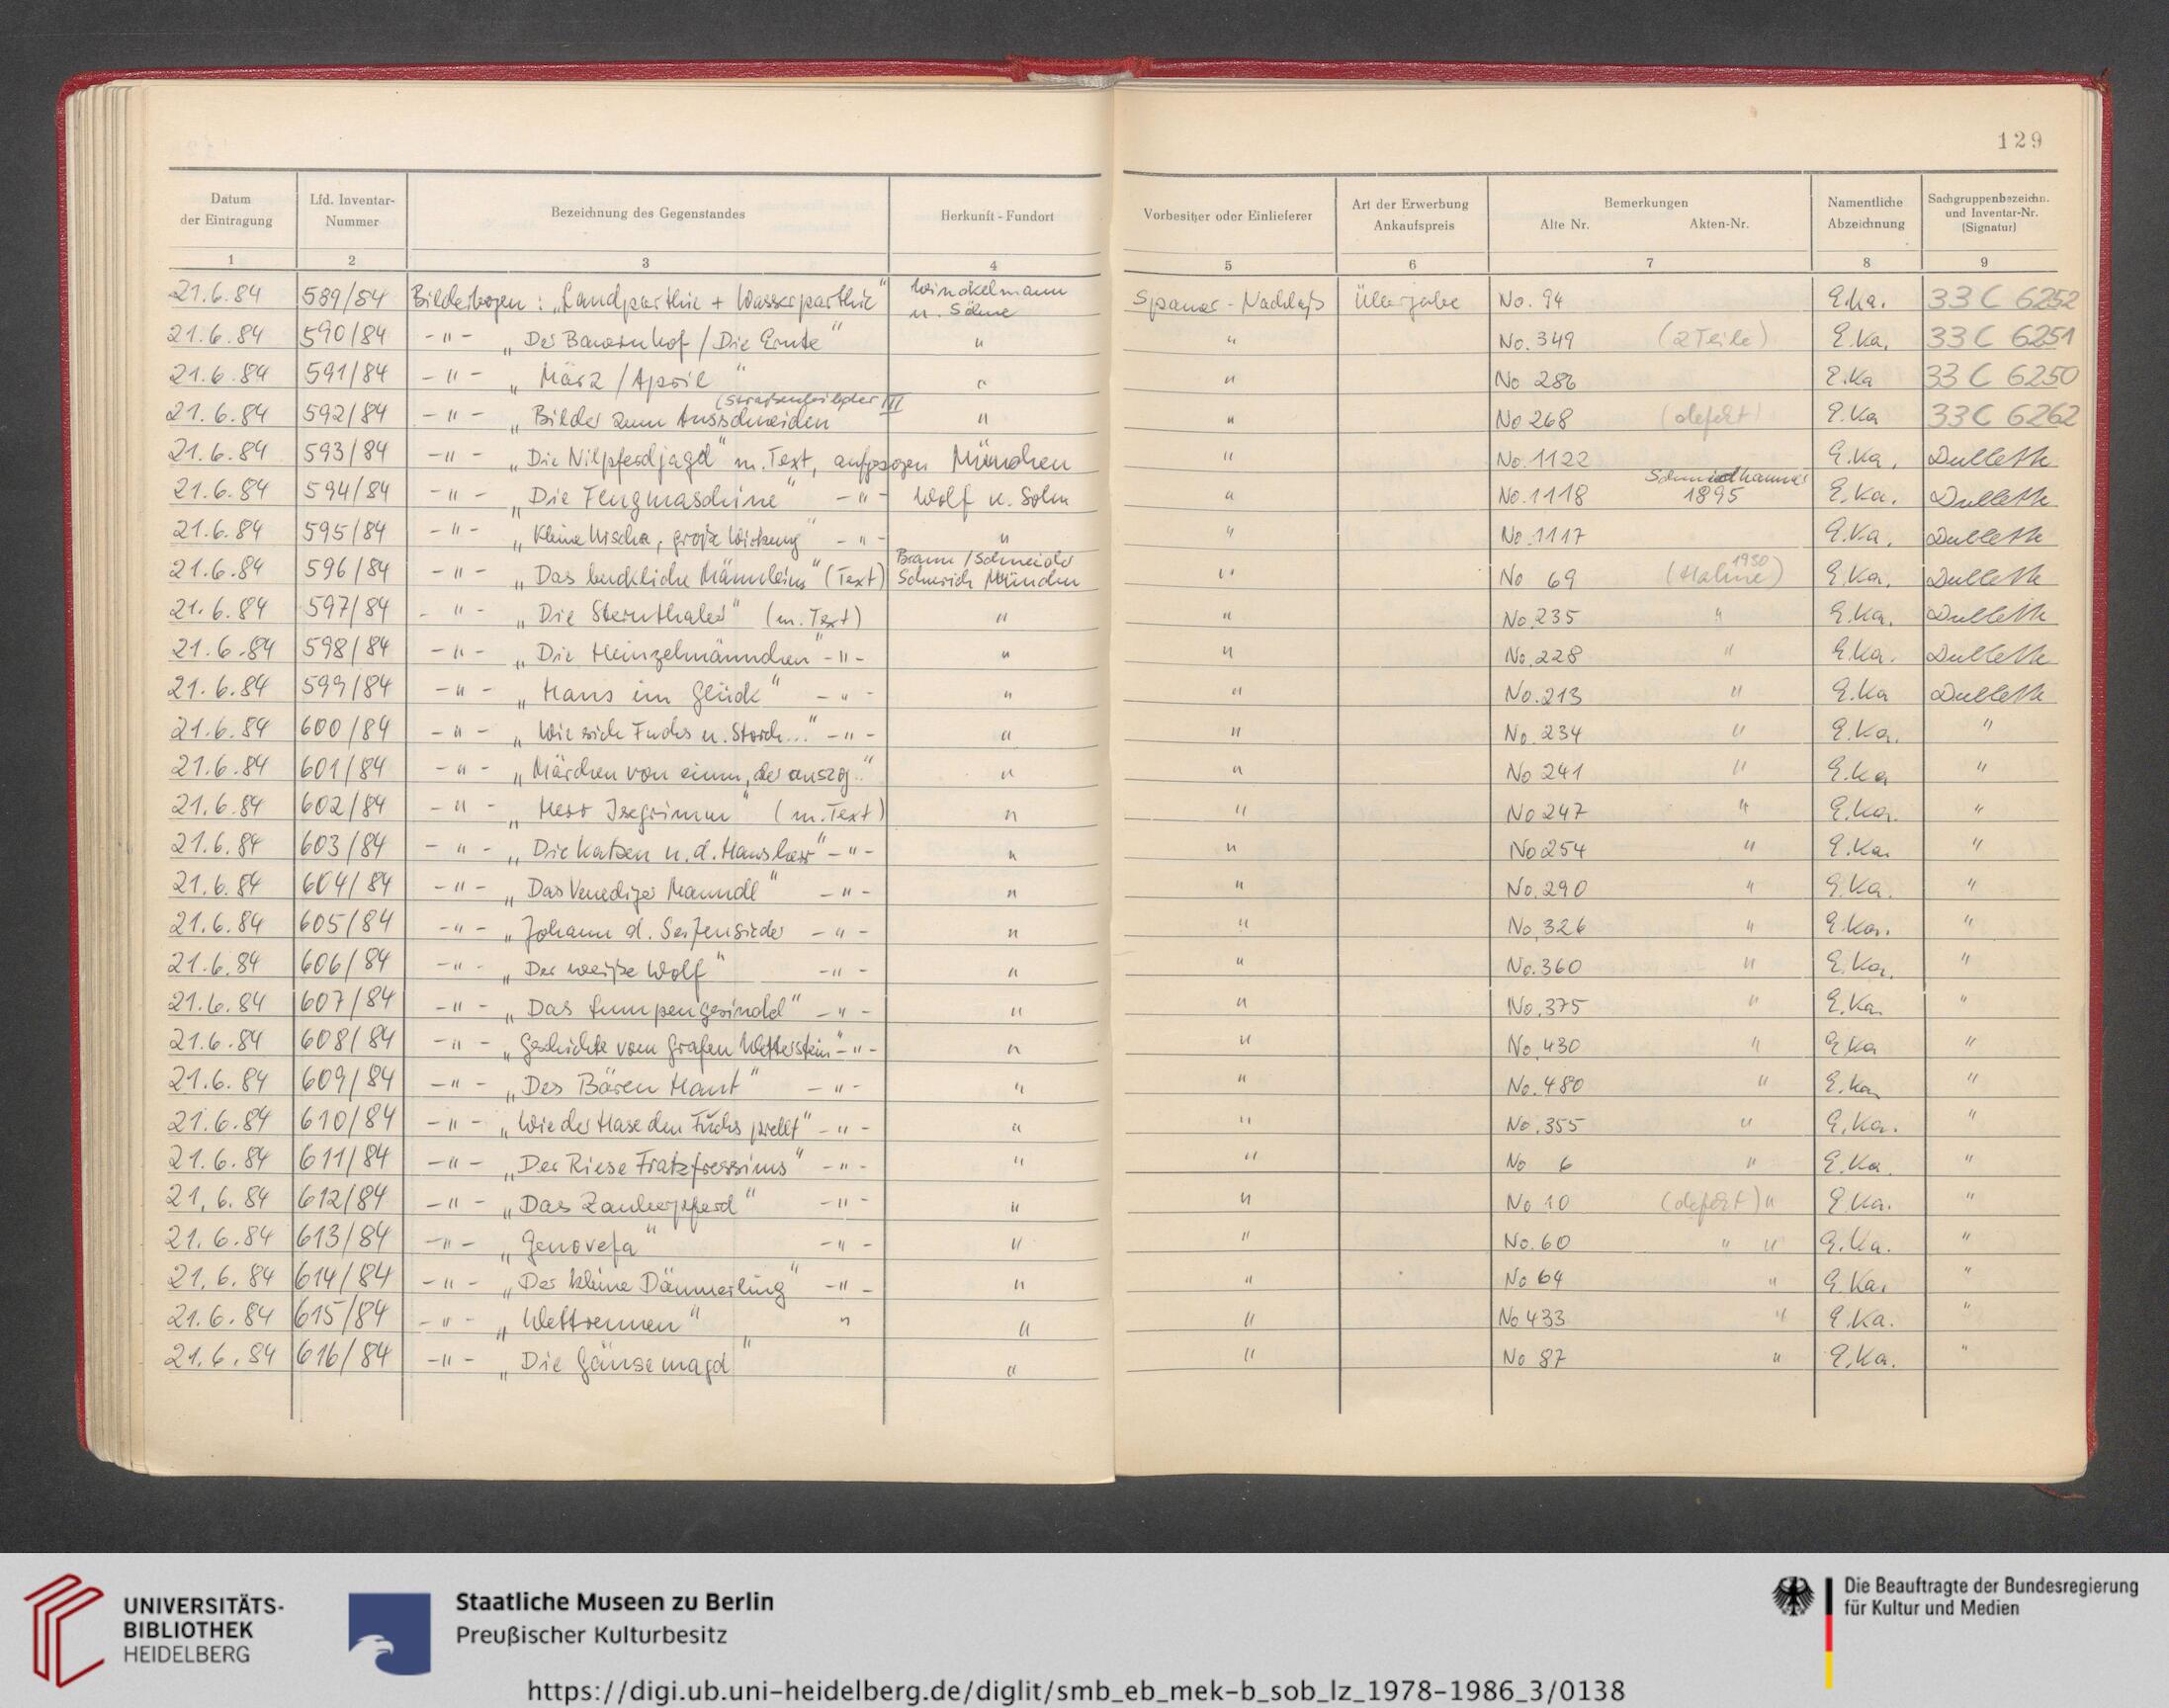 129
Datum der Eintragung | Lfd. Inventar-Nummer | Bezeichnung des Gegenstandes | Herkunft - Fundort | Vorbesitzer oder Einlieferer | Art der Erwerbung Ankaufspreis | Bemerkungen Alte Nr. Akten-Nr. | Namentliche Abzeichnung | Sachgruppenbezeichn. und Inventar-Nr. (Signatur)
1 2 3 4 5 6 7 8 9
21.6.84 589/84 Bilderbogen: „Landparthie + Wasserparthie" Winckelmann u. Söhne Spamer-Nachlaß Übergabe No. 94 E.Ka. 33 C 6252
21.6.84 590/84 -"- „Der Bauernhof / Die Ernte" " " No. 349 (2 Teile) E.Ka. 33 C 6251
21.6.84 591/84 -"- „März / April" " " No 286 E.Ka 33 C 6250
21.6.84 592/84 -"- „Bilder zum Ausschneiden (Straßenbilder III " " No 268 (defekt) E.Ka 33 C 6262
21.6.84 593/84 -"- „Die Nilpferdjagd" m. Text, aufgezogen München " No. 1122 E.Ka. Dublette
21.6.84 594/84 -"- „Die Flugmaschine" -"- Wolf u. Sohn " No. 1118 1895 E.Ka. Dublette
21.6.84 595/84 -"- „Kleine Urscha, große Wirkung" -"- " " No. 1117 E.Ka. Dublette
21.6.84 596/84 -"- „Das buckliche Männlein" (Text) Braun / Schneider München " No 69 (Hahne 1930) E.Ka. Dublette
21.6.84 597/84 -"- „Die Sternthaler" (m. Text) " " No. 235 " E.Ka. Dublette
21.6.84 598/84 -"- „Die Heinzelmännchen" -"- " " No. 228 " E.Ka. Dublette
21.6.84 599/84 -"- „Hans im Glück" -"- " " No. 213 " E.Ka Dublette
21.6.84 600/84 -"- „Wie sich Fuchs u. Storch..." -"- " " No. 234 " E.Ka. "
21.6.84 601/84 -"- „Märchen von einem, der auszog.." " " No 241 " E.Ka "
21.6.84 602/84 -"- „Herr Isegrimm" (m. Text) " " No 247 " E.Ka. "
21.6.84 603/84 -"- „Die Katzen u. d. Hausherr" -"- " " No 254 " E.Ka. "
21.6.84 604/84 -"- „Das Venediger Manndl" -"- " " No. 290 " E.Ka. "
21.6.84 605/84 -"- „Johann d. Seifensieder -"- " " No. 326 " E.Ka. "
21.6.84 606/84 -"- „Der weiße Wolf" -"- " " No. 360 " E.Ka. "
21.6.84 607/84 -"- „Das Lumpengesindel" -"- " " No. 375 " E.Ka. "
21.6.84 608/84 -"- „Geschichte vom Grafen Wetterstein" -"- " " No. 430 " E.Ka "
21.6.84 609/84 -"- „Des Bären Haut" -"- " " No. 480 " E.Ka. "
21.6.84 610/84 -"- „Wie der Hase den Fuchs prellt" -"- " " No. 355 " E.Ka. "
21.6.84 611/84 -"- „Der Riese Fratzfressimus" -"- " " No 6 " E.Ka. "
21.6.84 612/84 -"- „Das Zauberpferd" -"- " " No 10 (defekt) " E.Ka. "
21.6.84 613/84 -"- „Genovefa" -"- " " No. 60 " " E.Ka. "
21.6.84 614/84 -"- „Der kleine Däumerling" -"- " " No 64 " E.Ka. "
21.6.84 615/84 -"- „Wettrennen" " " " No 433 " E.Ka. "
21.6.84 616/84 -"- „Die Gänsemagd" " " No 87 " E.Ka. "
UNIVERSITÄTS-
BIBLIOTHEK
HEIDELBERG
Staatliche Museen zu Berlin
Preußischer Kulturbesitz
Die Beauftragte der Bundesregierung
für Kultur und Medien
https://digi.ub.uni-heidelberg.de/diglit/smb_eb_mek-b_sob_lz_1978-1986_3/0138